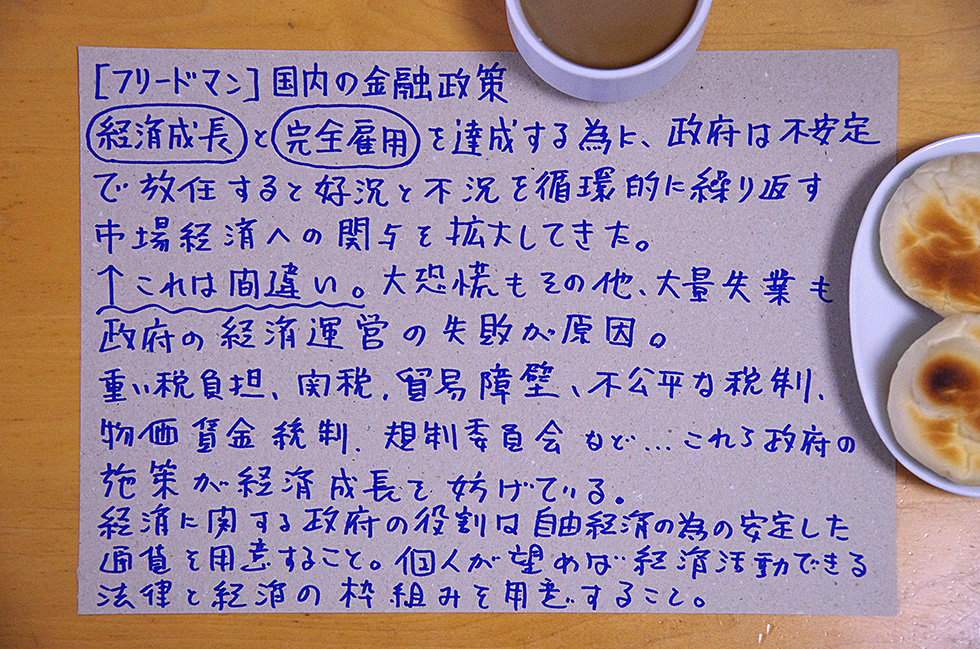 [フリードマン]国内の金融政策
経済成長と完全雇用を達成する為に、政府は不安定
で放任すると好況と不況を循環的に繰り返す
市場経済への関与を拡大してきた。
↑これは間違い。大恐慌もその他、大量失業も
政府の経済運営の失敗が原因。
重い税負担、関税、貿易障壁、不公平な税制、
物価賃金統制、規制委員会など…これら政府の
施策が経済成長を妨げている。
経済に関する政府の役割は自由経済の為の安定した
通貨を用意すること。個人が望めば経済活動できる
法律と経済の枠組みを用意すること。